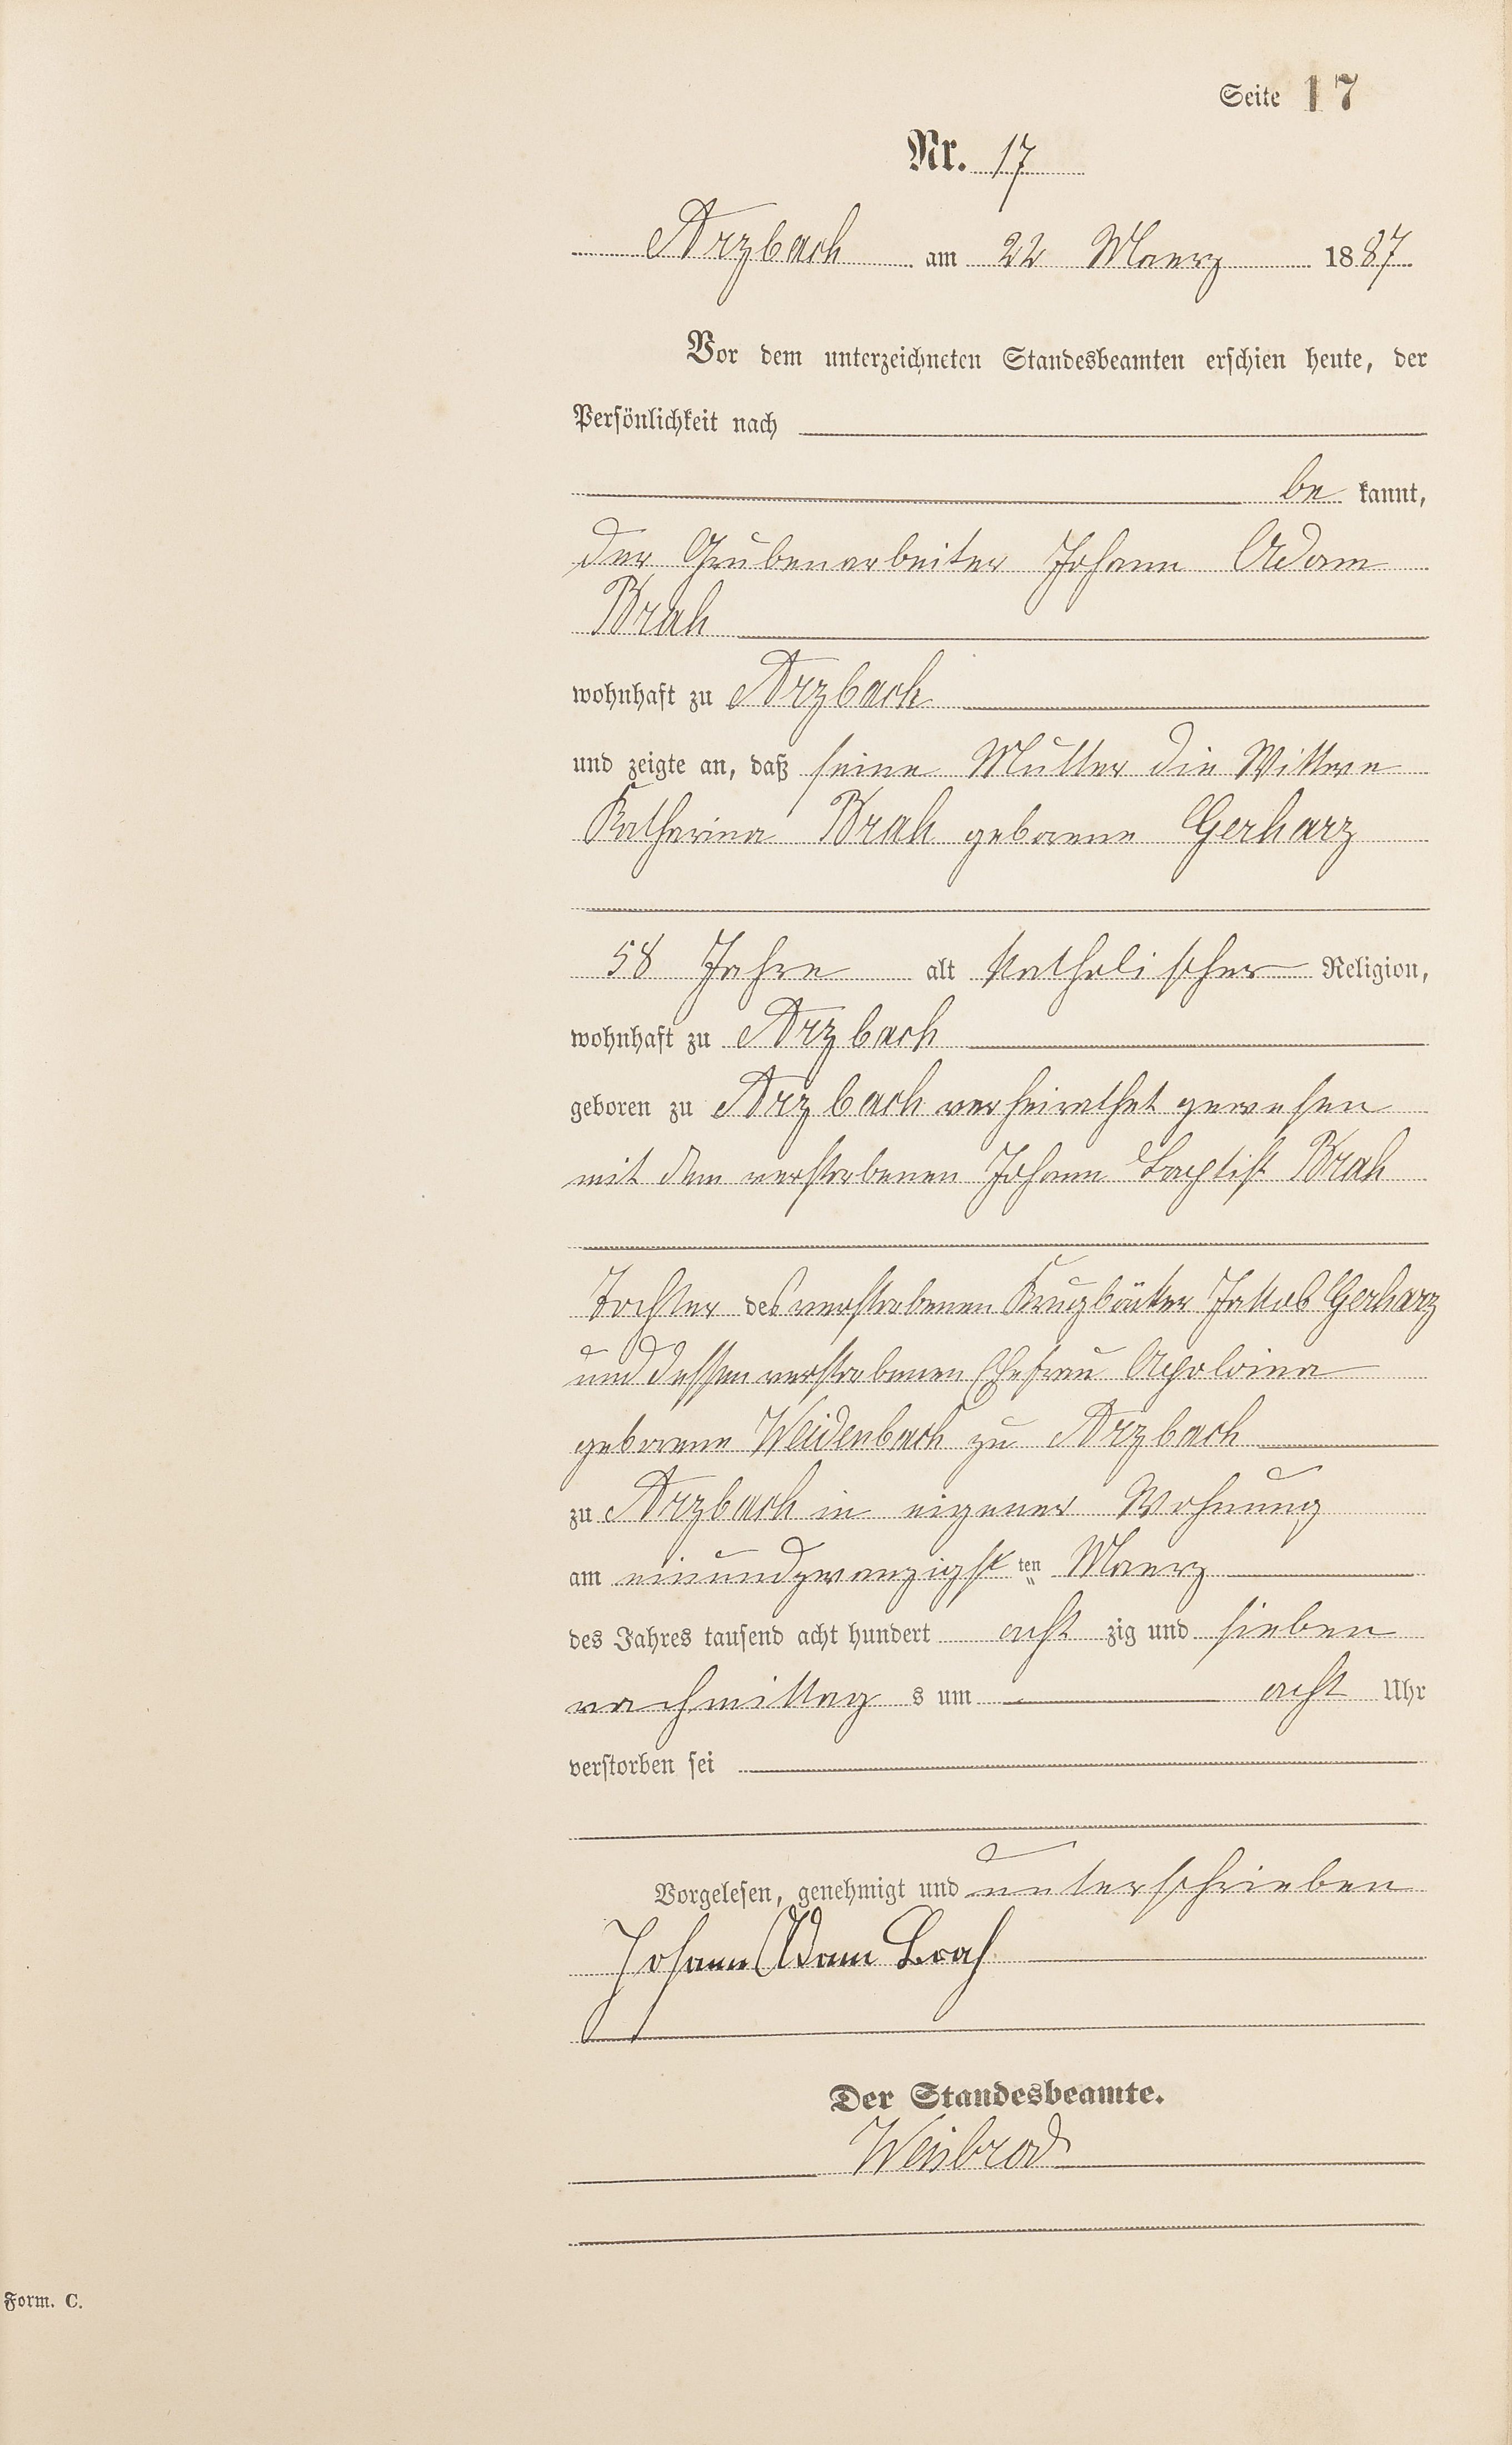 Seite 17
Nr. 17
Arzbach am 22 Maerz 1887
Vor dem unterzeichneten Standesbeamten erschien heute, der
Persönlichkeit nach
be kannt,
der Grubenarbeiter Johann Adam
Brah
wohnhaft zu Arzbach
und zeigte an, daß seine Mutter die Wittwe
Katharina Brah geborene Gerharz
58 Jahre alt katholischer Religion,
wohnhaft zu Arzbach
geboren zu Arzbach verheirathet gewesen
mit dem verstorbenen Johann Baptist Brah
Tochter des verstorbenen Krugbäcker Jakob Gerharz
und dessen verstorbenen Ehefrau Apoloina
geborene Weidenbach zu Arzbach
zu Arzbach in eigener Wohnung
am einundzwanzigst ten Maerz
des Jahres tausend acht hundert acht zig und sieben
nachmittag s um acht Uhr
verstorben sei
Vorgelesen, genehmigt und unterschrieben
Johann Adam Brah
Der Standesbeamte.
Weisbrod
Form. C.